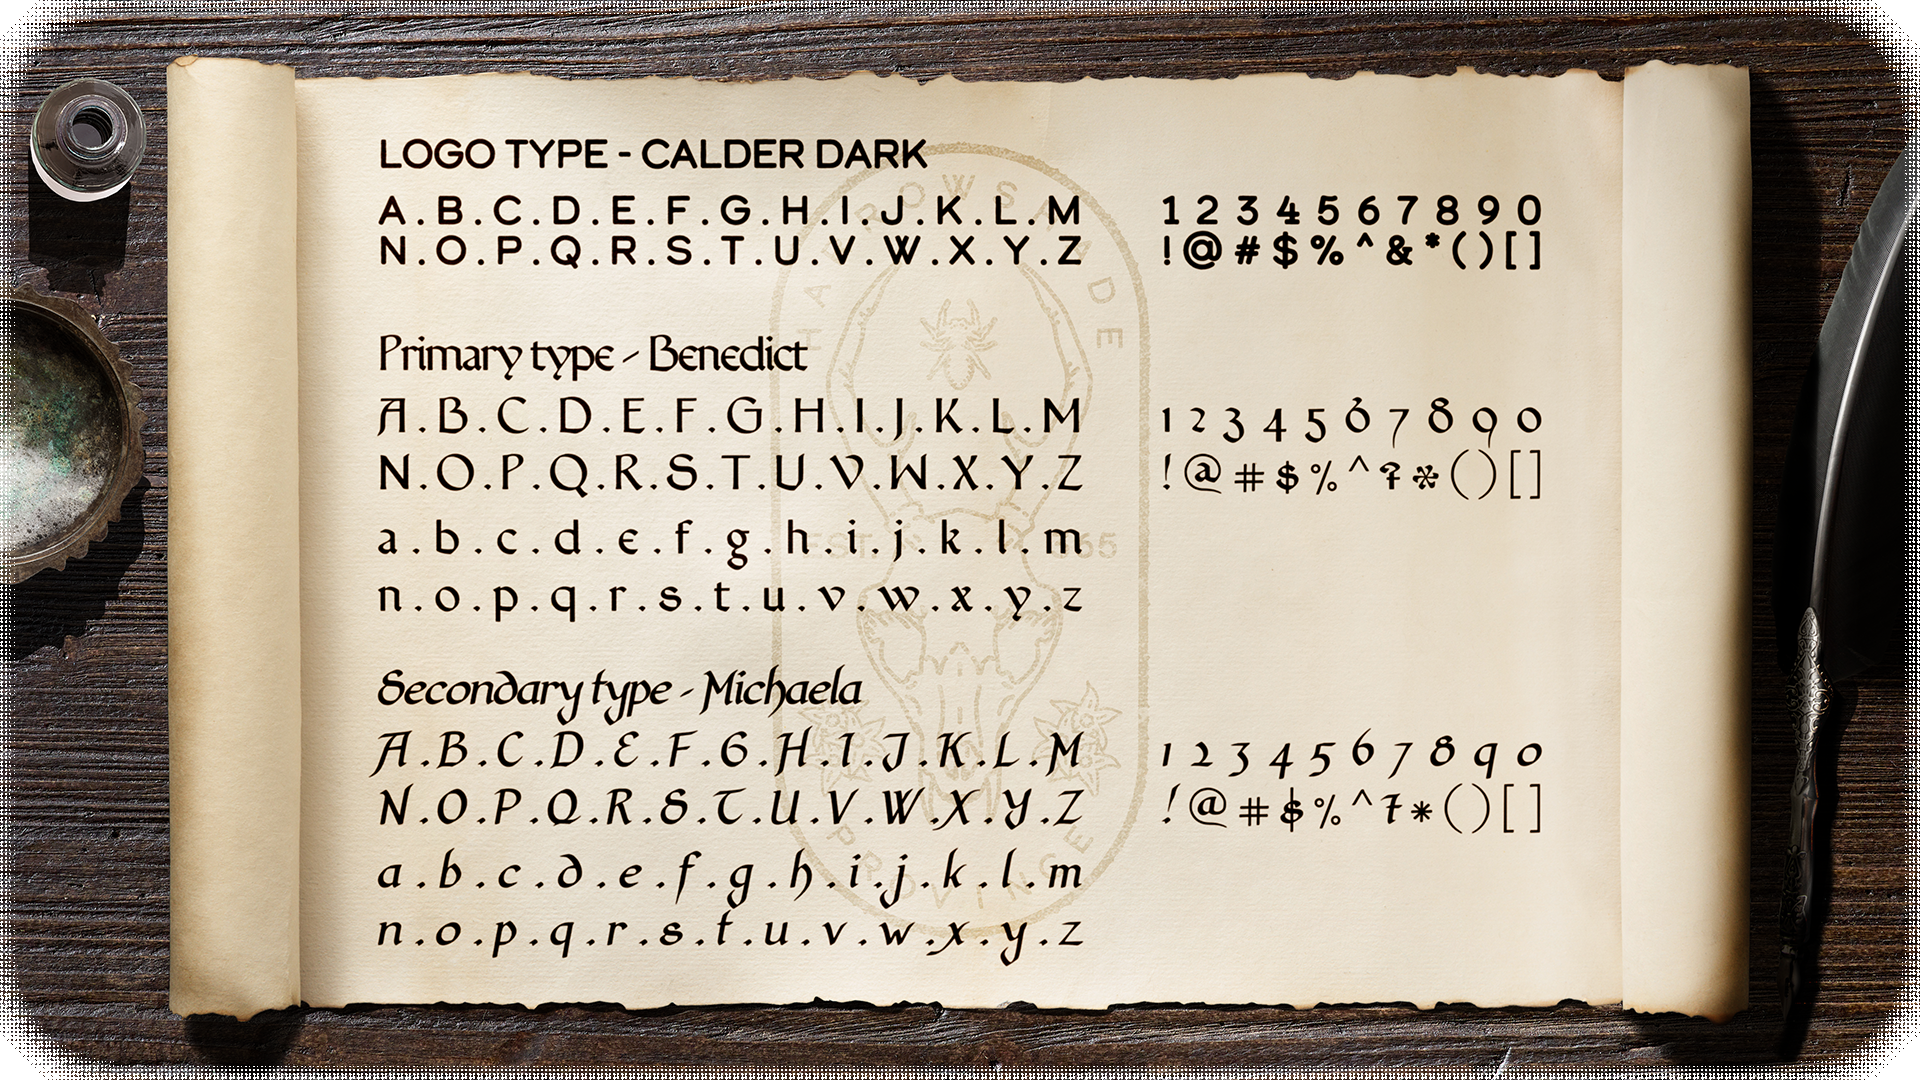 LOGO TYPE - CALDER DARK
A.B.C.D.E.F.G.H.I.J.K.L.M
1 2 3 4 5 6 7 8 9 0
N.O.P.Q.R.S.T.U.V.W.X.Y.Z
!@#$%^&*()[]
Primary type - Benedict
A.B.C.D.E.F.G.H.I.J.K.L.M
1 2 3 4 5 6 7 8 9 0
N.O.P.Q.R.S.T.U.V.W.X.Y.Z
!@#$%^&*()[]
a.b.c.d.e.f.g.h.i.j.k.l.m
n.o.p.q.r.s.t.u.v.w.x.y.z
Secondary type - Michaela
A.B.C.D.E.F.G.H.I.J.K.L.M
1 2 3 4 5 6 7 8 9 0
N.O.P.Q.R.S.T.U.V.W.X.Y.Z
!@#$%^&*()[]
a.b.c.d.e.f.g.h.i.j.k.l.m
n.o.p.q.r.s.t.u.v.w.x.y.z
PROVINCE